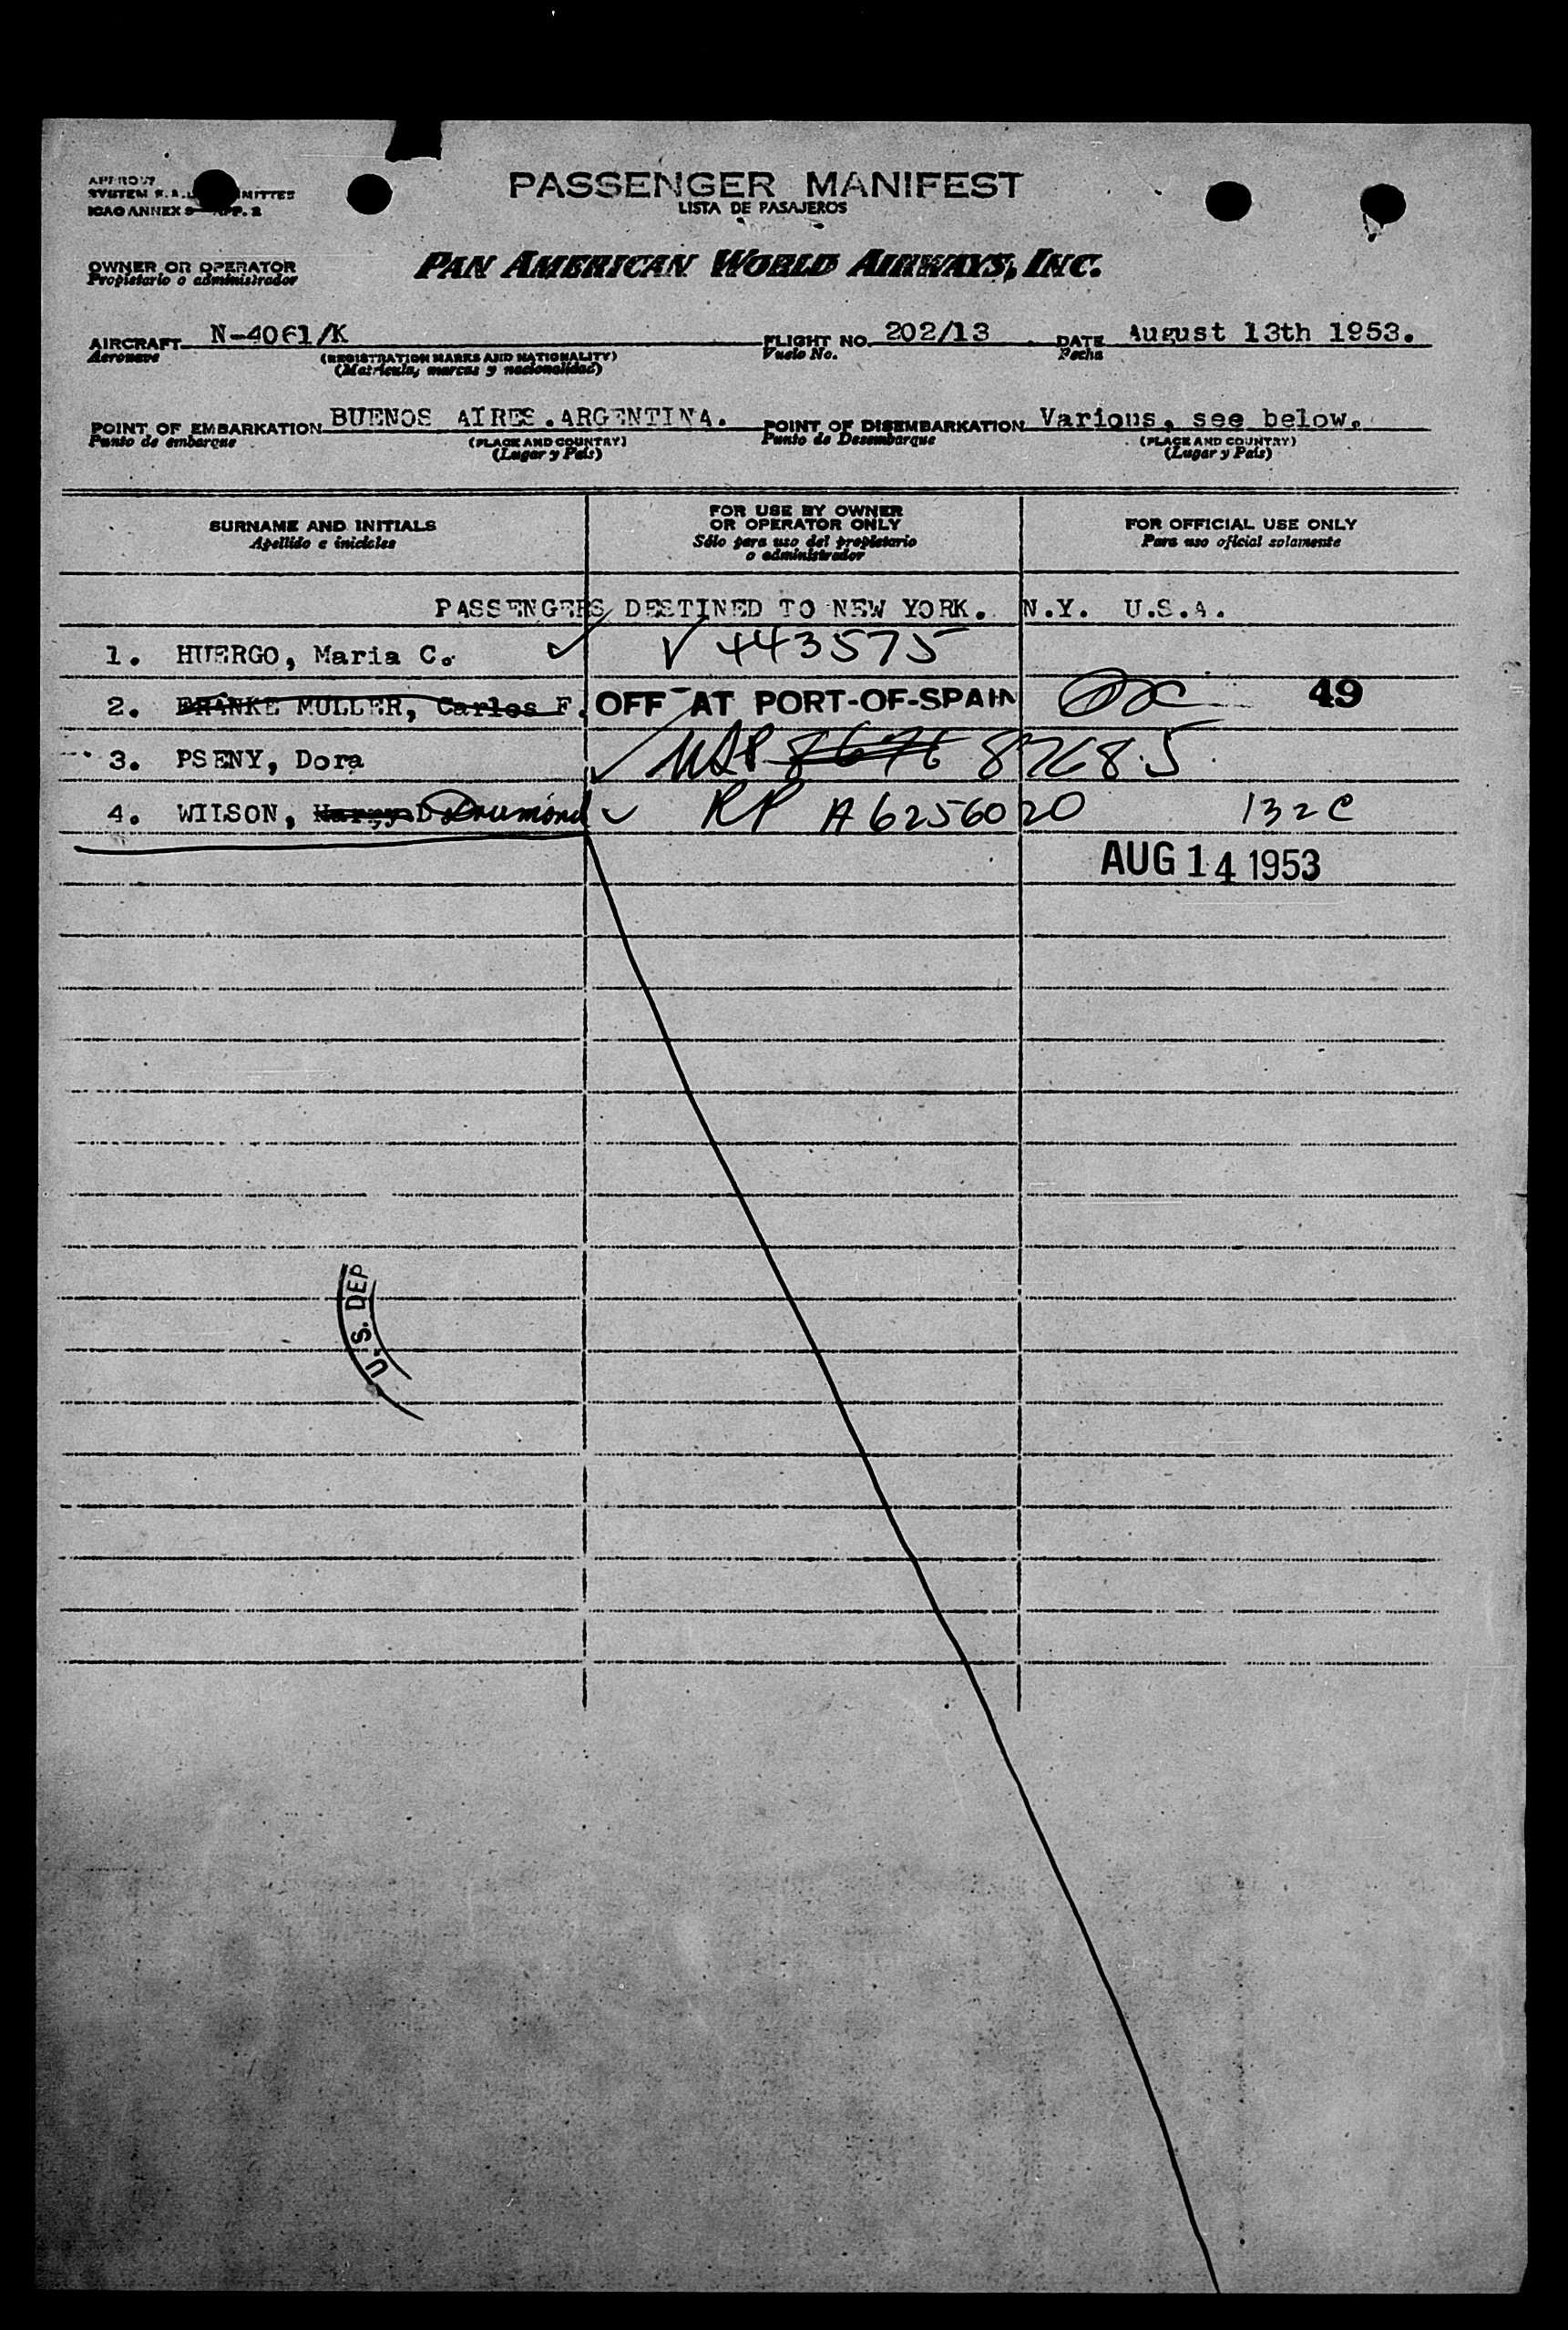 PASSENGER MANIFEST
LISTA DE PASAJEROS
SYSTEM
ICAO ANNEX 9 APP. 2
OWNER OR OPERATOR
Propietario o administrador
PAN AMERICAN WORLD AIRWAYS, INC.
AIRCRAFT N-4061/K FLIGHT NO. 202/13 DATE August 13th 1953.
Aeronave (REGISTRATION MARKS AND NATIONALITY) Vuelo No. Fecha
(Matricula, marcas y nacionalidad)
POINT OF EMBARKATION BUENOS AIRES.ARGENTINA. POINT OF DISEMBARKATION Various, see below.
Punto de embarque (PLACE AND COUNTRY) Punto de Desembarque (PLACE AND COUNTRY)
(Lugar y País) (Lugar y País)
SURNAME AND INITIALS FOR USE BY OWNER OR OPERATOR ONLY FOR OFFICIAL USE ONLY
Apellido e iniciales Sólo para uso del propietario o administrador Para uso oficial solamente
PASSENGERS DESTINED TO NEW YORK. N.Y. U.S.A.
1. HUERGO, Maria C. V 443575
2. FRANKE MULLER, Carlos F. OFF AT PORT-OF-SPAIN 49
3. PSENY, Dora USP 8676 87685
4. WILSON, Harry D Drumond RP A6256020 132C
AUG 14 1953
U.S. DEP